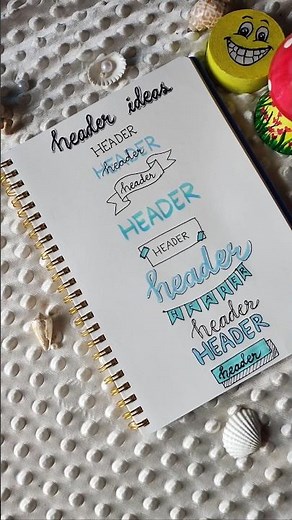 header ideas
HEADER
HEADER
header
header
HEADER
HEADER
header
HEADER
header
HEADER
header